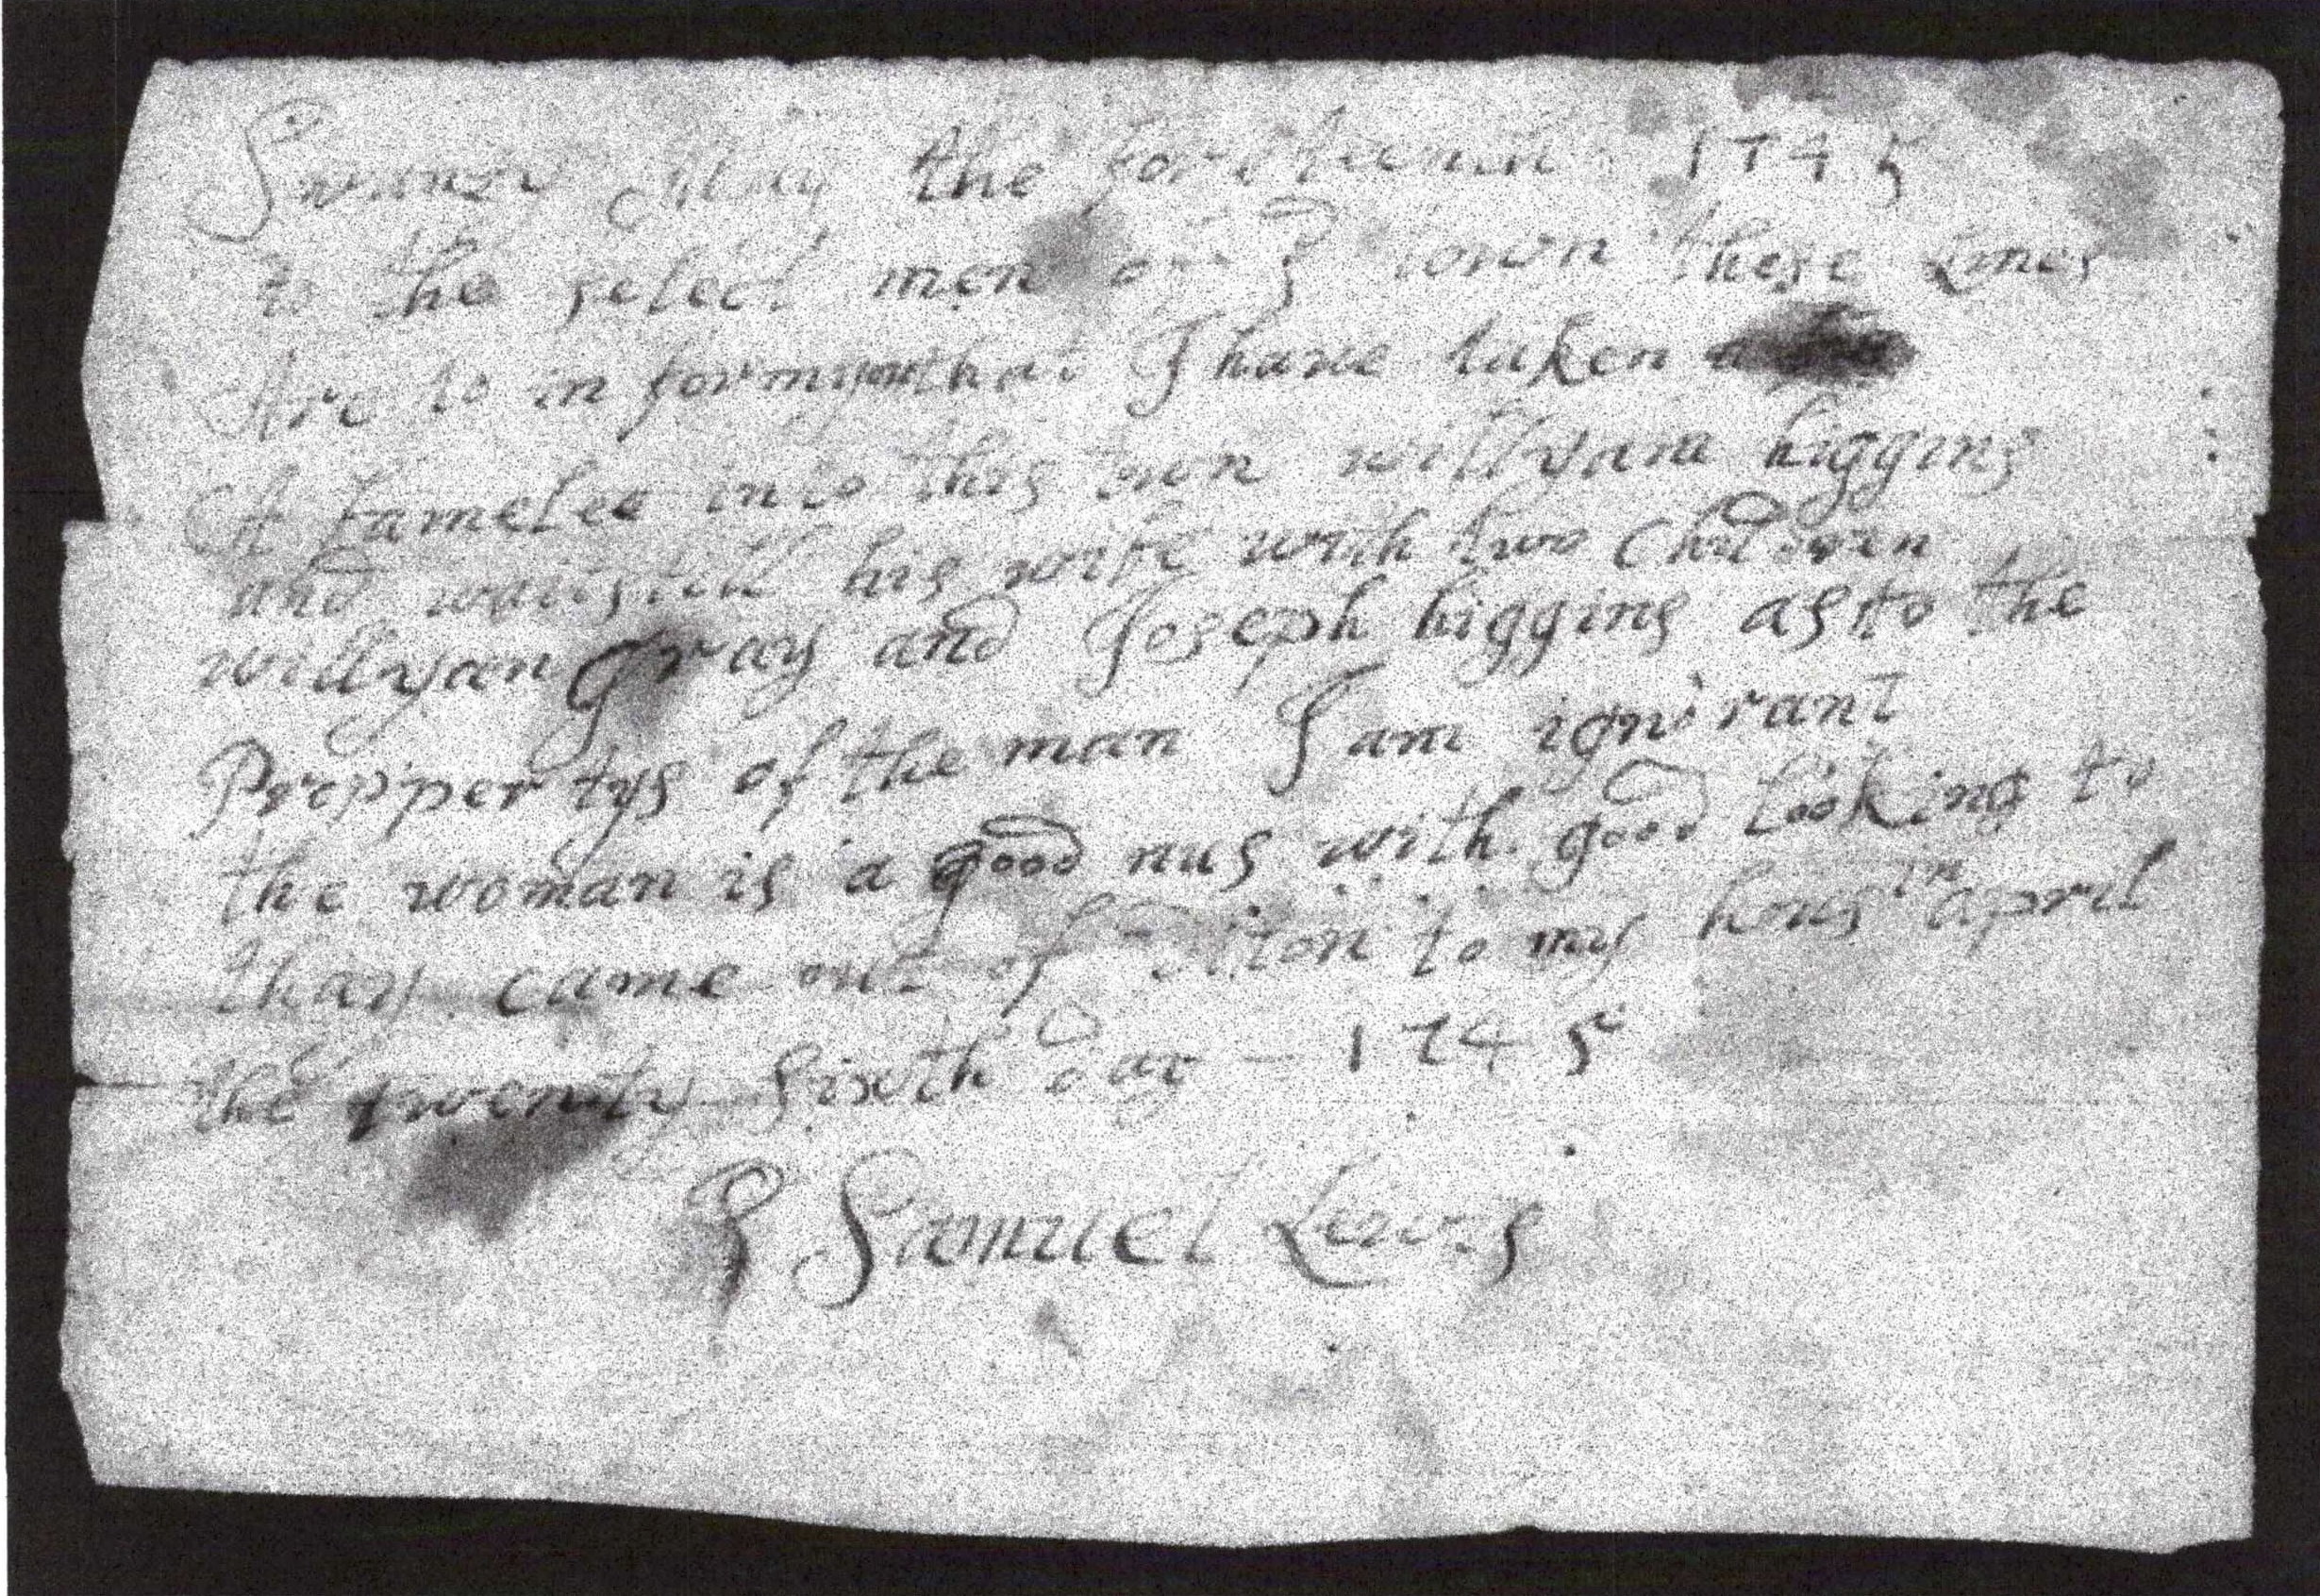 Swanzy May the forteenn 1745
to the select men of town these Lines
Are to in form you that I have taken
A famelee into this town willyam higgins
and waitstill his wife with two Children
willyam Gray and Joseph higgins as to the
Proppertys of the man I am ignorant
the woman is a good nus with good Looking to
thay came out of to my hous in april
the twenty sixth day - 1745
P Samuel Lewis